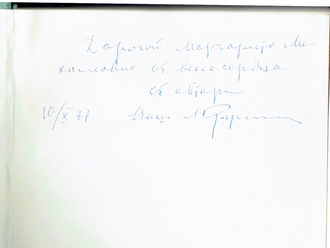 Дорогой Маргарите Ми-
хайловне от всего сердца
от автора
10/X 77 Ваш